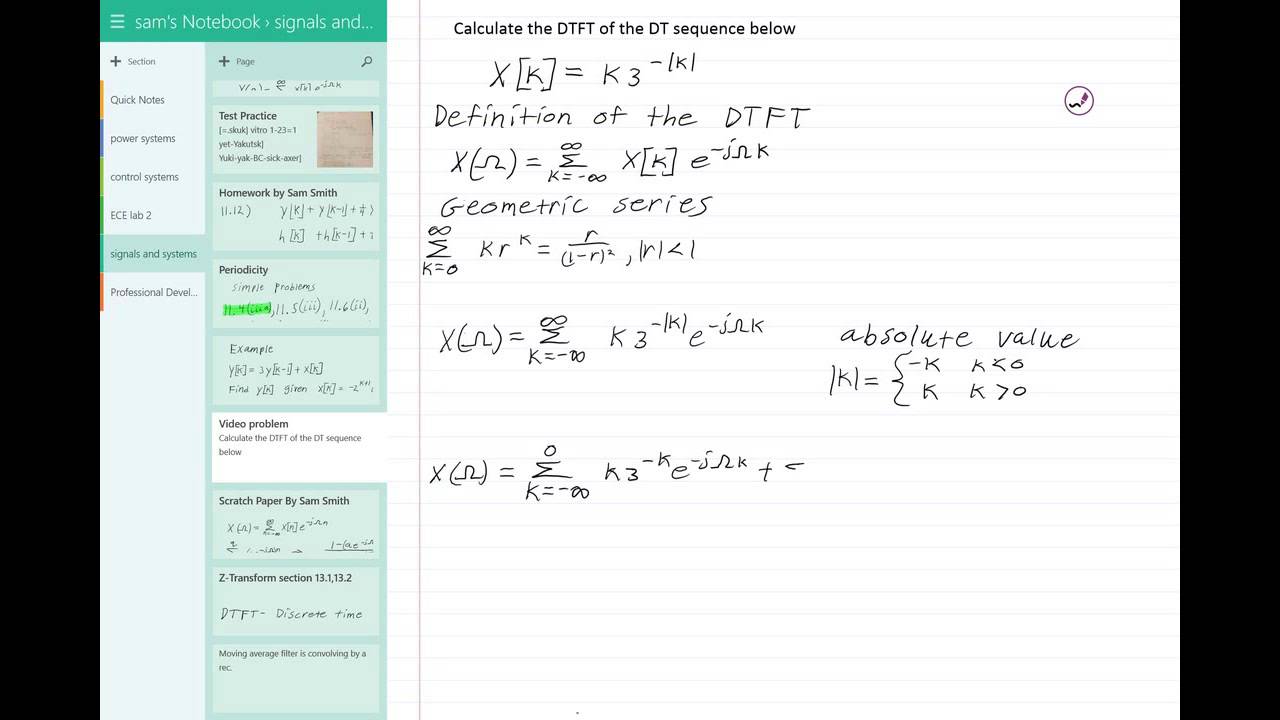 sam's Notebook › signals and...
+ Section
Quick Notes
power systems
control systems
ECE lab 2
signals and systems
Professional Devel...
+ Page
Test Practice
[=.skuk] vitro 1-23=1
yet-Yakutsk]
Yuki-yak-BC-sick-axer]
Homework by Sam Smith
11.12) y[k] + y[k-1] +
h[k] + h[k-1] +
Periodicity
simple problems
11.4(iii), 11.5(iii), 11.6(ii),
Example
y[k] = 3y[k-1] + x[k]
Find y[k] given x[k] = -2^(k+1)
Video problem
Calculate the DTFT of the DT sequence
below
Scratch Paper By Sam Smith
X(Ω) = ∑_{n=-∞}^{∞} x[n] e^{-jΩn}
Z-Transform section 13.1,13.2
DTFT- Discrete time
Moving average filter is convolving by a
rec.
Calculate the DTFT of the DT sequence below
X[k] = k 3^{-|k|}
Definition of the DTFT
X(Ω) = ∑_{k=-∞}^{∞} X[k] e^{-jΩk}
Geometric series
∑_{k=0}^{∞} k r^k = r/(1-r)², |r|<1
X(Ω) = ∑_{k=-∞}^{∞} k 3^{-|k|} e^{-jΩk}
absolute value
|k| = { -k k<0
k k>0
X(Ω) = ∑_{k=-∞}^{0} k 3^{-k} e^{-jΩk} +